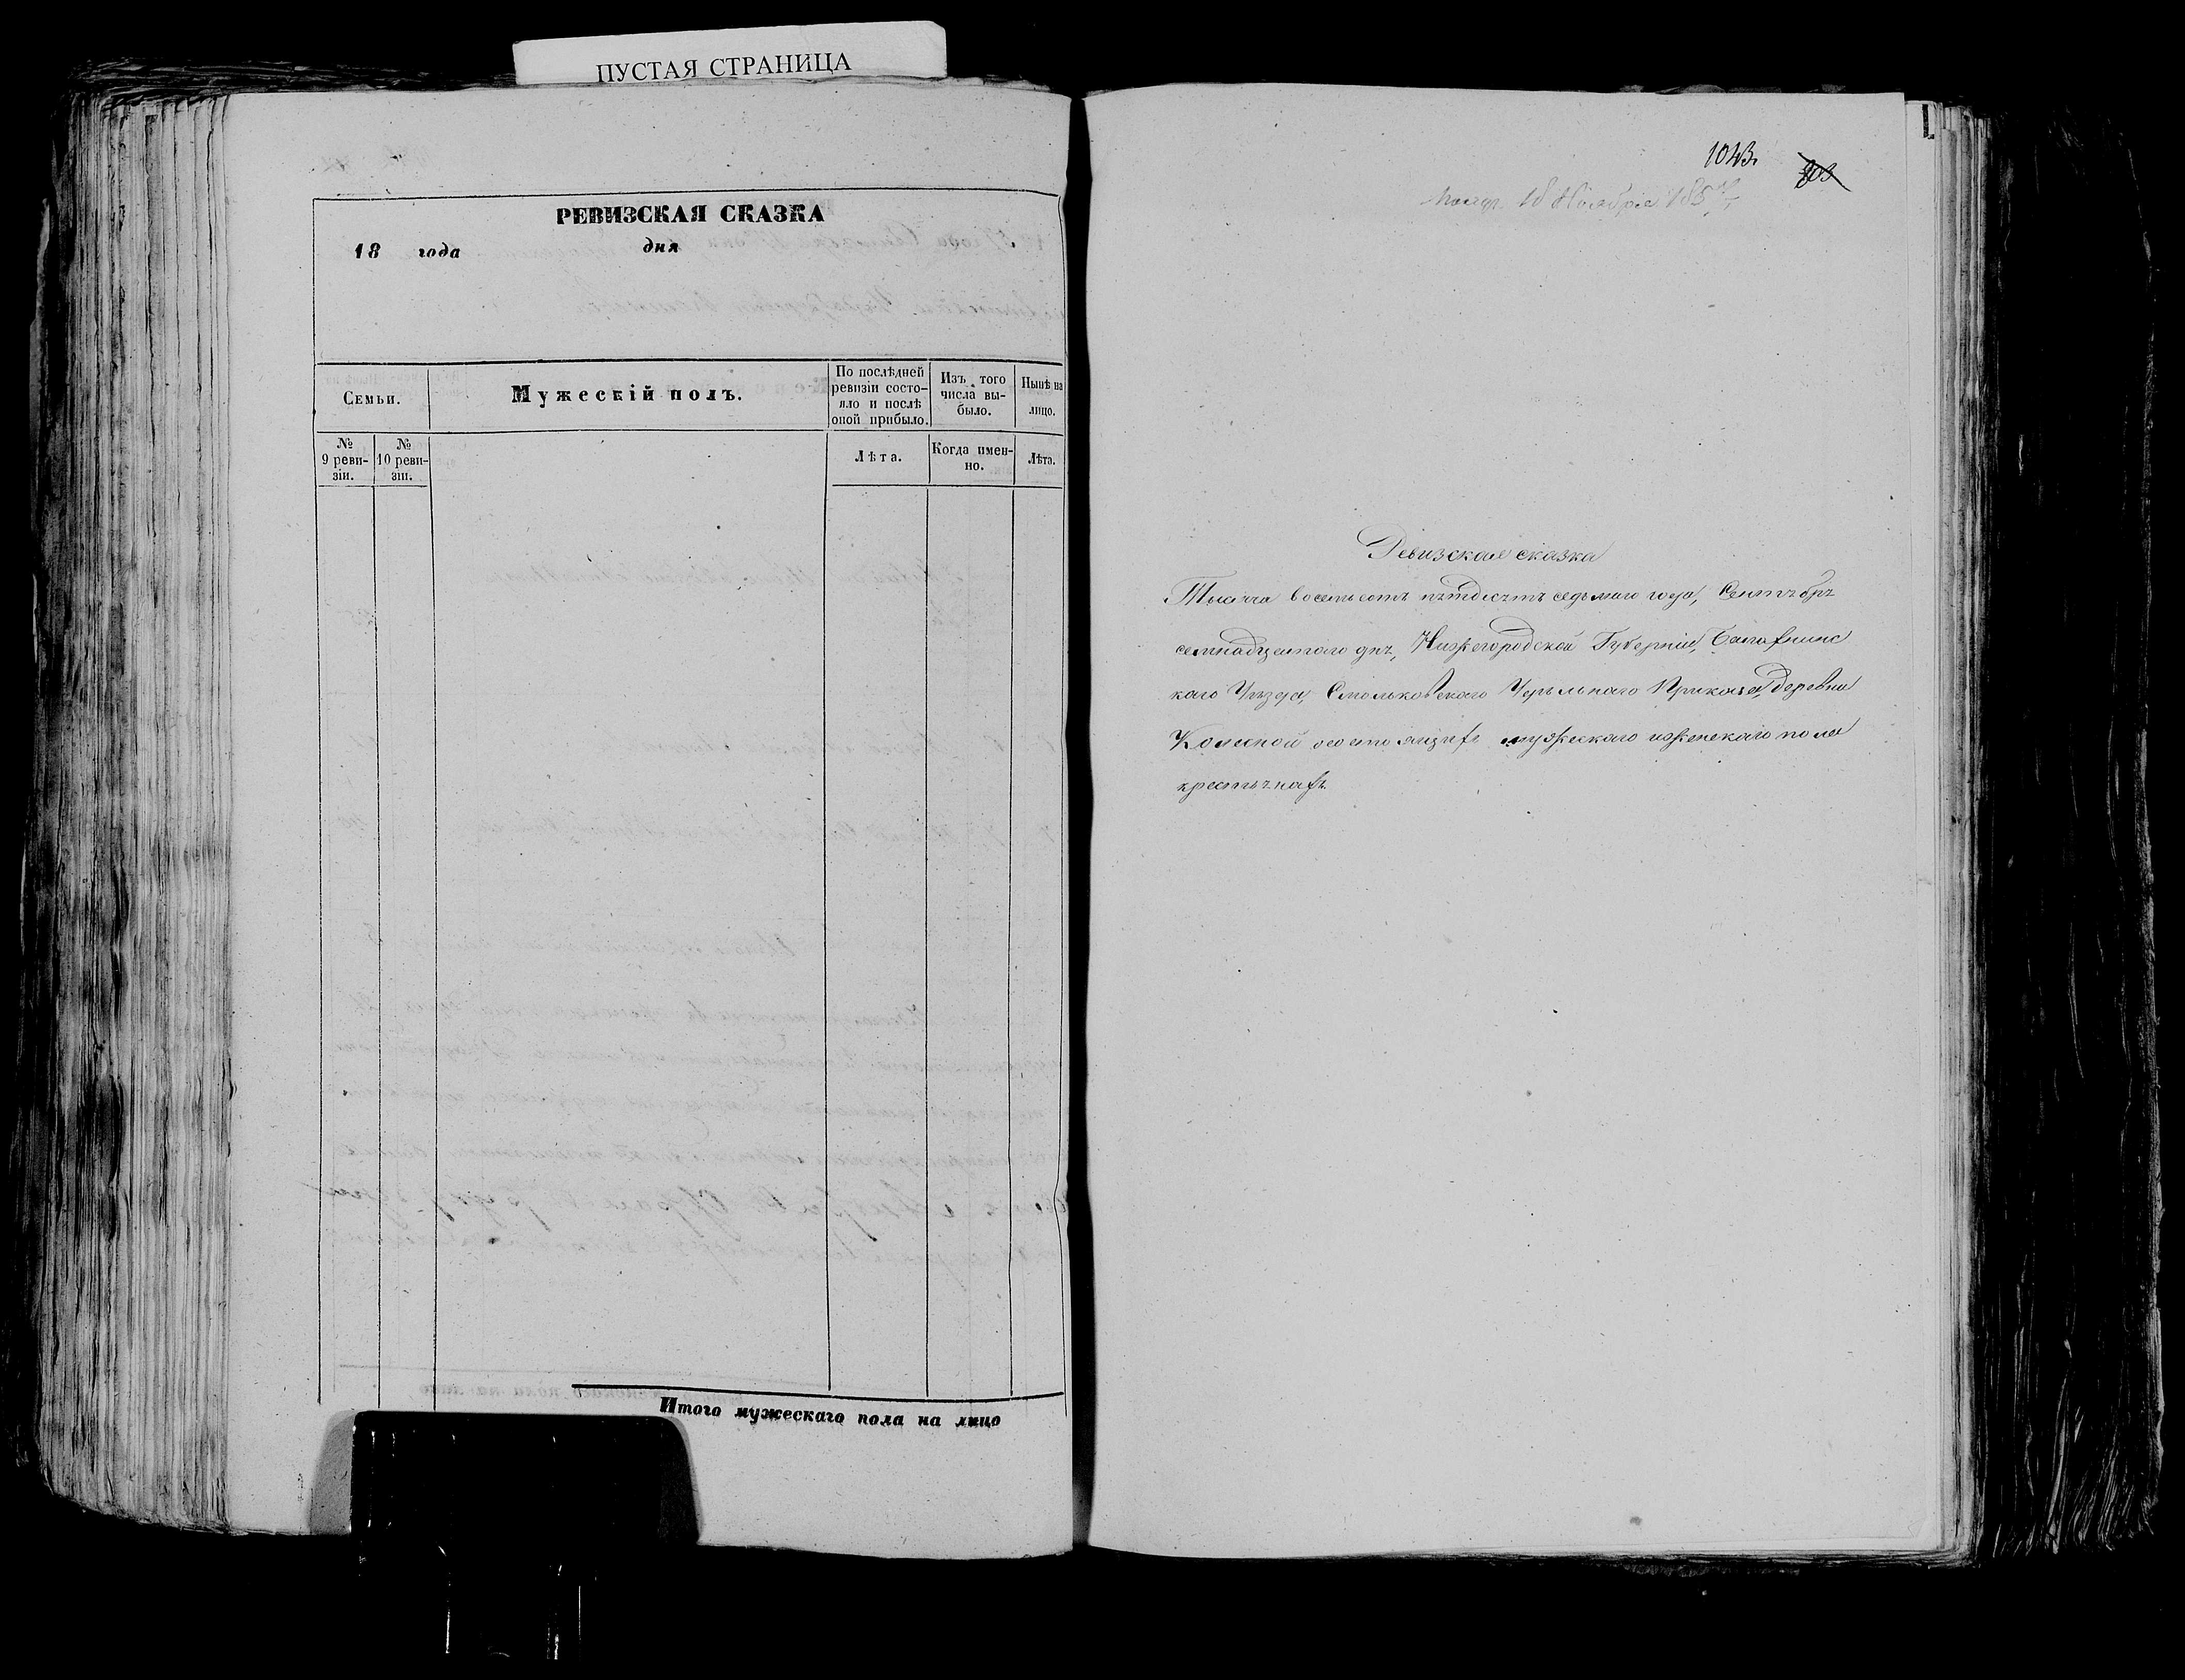 ПУСТАЯ СТРАНИЦА
РЕВИЗСКАЯ СКАЗКА
18 года дня
Семьи.
Мужескій полъ.
По послѣдней
ревизіи состо-
яло и послѣ
оной прибыло.
Изъ того
числа вы-
было.
Нынѣ на
лицо.
№
9 реви-
зіи.
№
10 реви-
зіи.
Лѣта.
Когда имен-
но.
Лѣта.
Итого мужескаго пола на лицо
1043.
903
18 Ноября 1857
Ревизская сказка
Тысяча восемьсотъ пятьдесятъ седьмаго года, Сентября
семнадцатаго дня, Нижегородской Губерніи, Балахнинс
каго Уѣзда, Смольковскаго Удѣльнаго Приказа, деревни
состоящихъ мужескаго и женскаго пола
крестьянахъ.